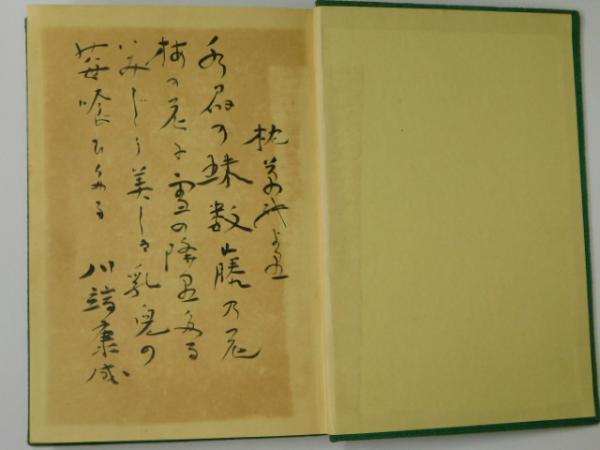 枕草紙より
水晶の珠数藤の花
梅の花に雪の降りたる
いみじう美しき乳児の
苺喰ひたる
川端康成